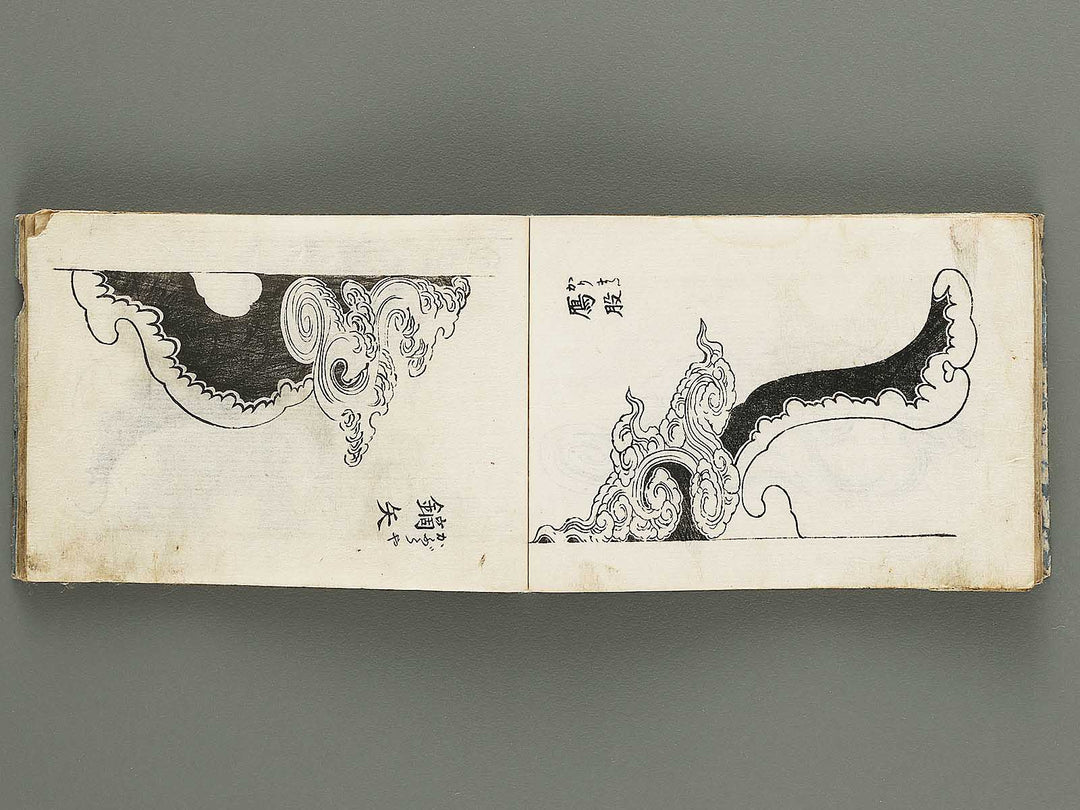 鳫股
かりまた
鏑矢
かぶらや